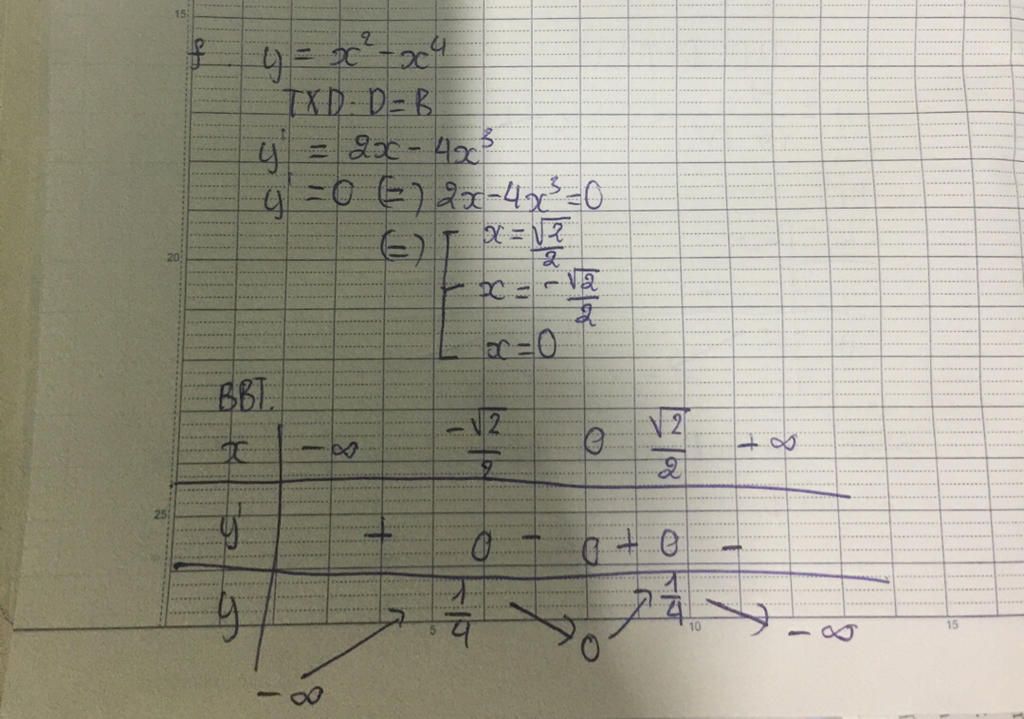 15
f. y = x² - x⁴
TXD: D = R
y' = 2x - 4x³
y' = 0 (=) 2x - 4x³ = 0
(=) [ x = √2/2
20
x = -√2/2
x = 0
BBT.
x | -∞ -√2/2 0 √2/2 +∞
25
y' + 0 - 0 + 0 -
y 1/4 0 1/4 -∞
5 10 15
-∞